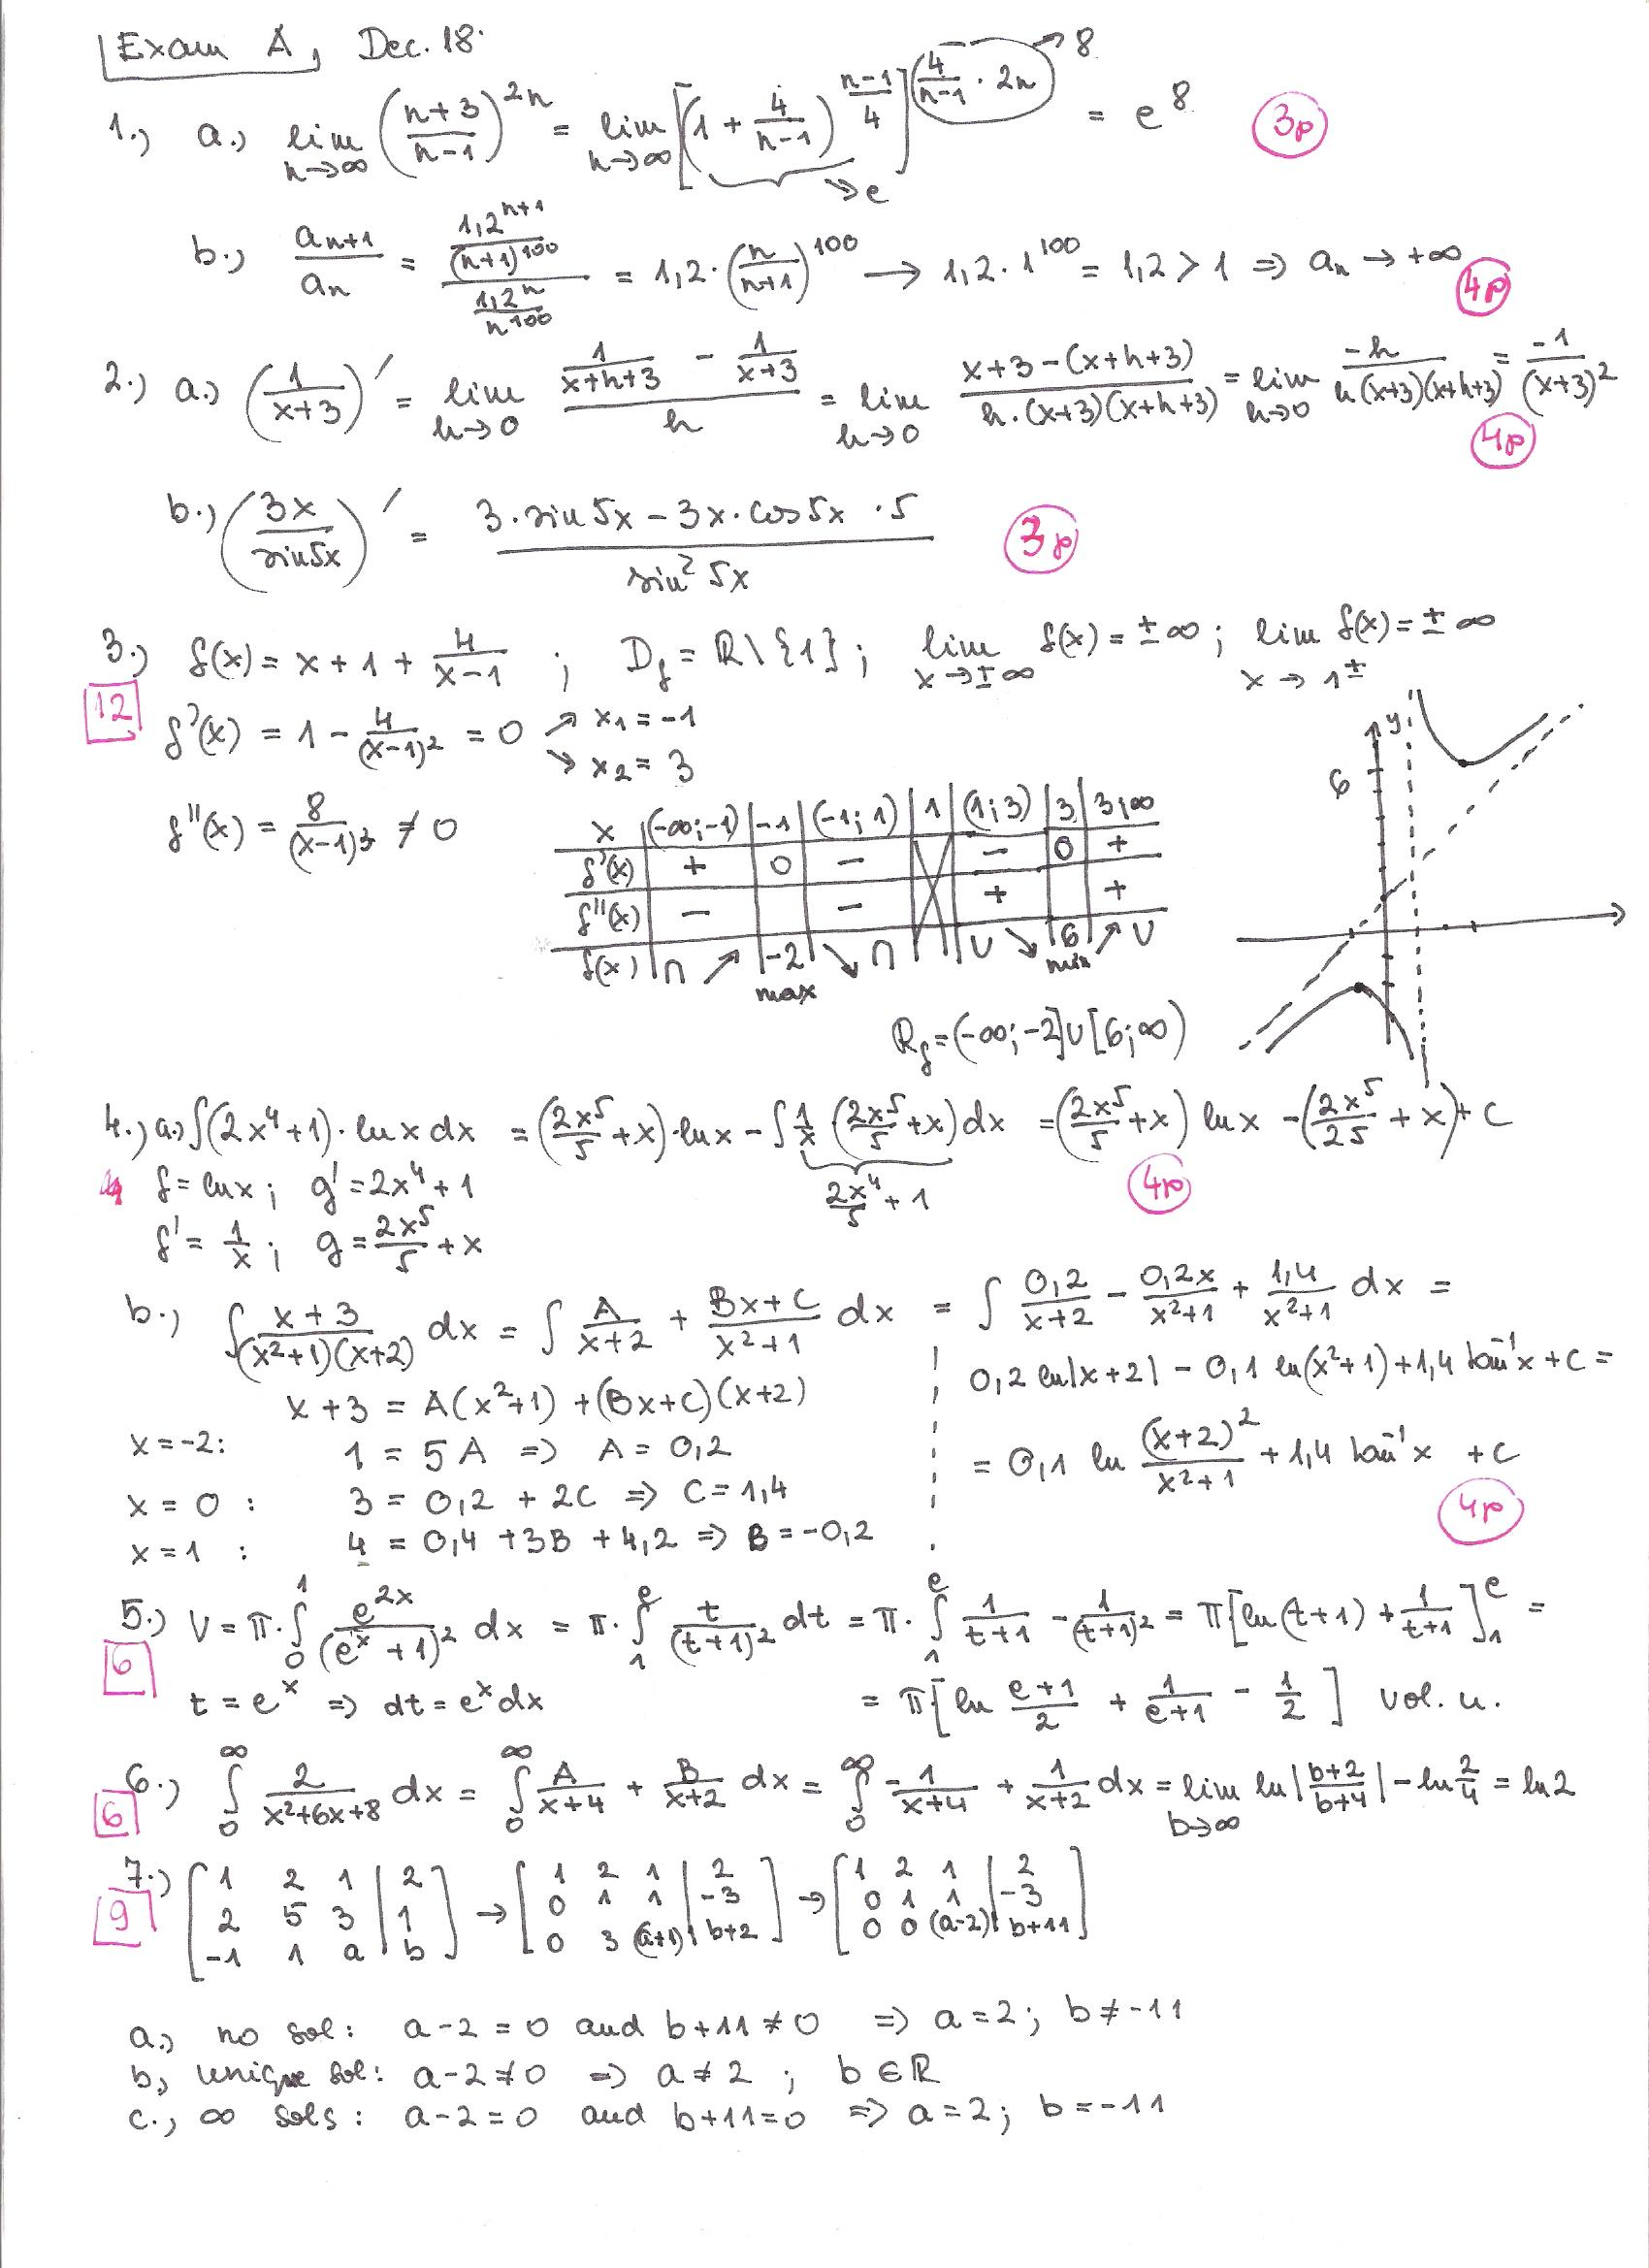 Exam A, Dec. 18.
1.) a.) lim n→∞ ((n+3)/(n-1))^(2n) = lim n→∞ [(1 + 4/(n-1))^((n-1)/4)]^(4/(n-1) · 2n) = e^8 3p
→ e
→ 8
b.) a_(n+1)/a_n = (1,2^(n+1)/(n+1)^100)/(1,2^n/n^100) = 1,2·(n/(n+1))^100 → 1,2·1^100 = 1,2 > 1 ⇒ a_n → +∞ 4p
2.) a.) (1/(x+3))' = lim h→0 (1/(x+h+3) - 1/(x+3))/h = lim h→0 (x+3-(x+h+3))/(h·(x+3)(x+h+3)) = lim h→0 -h/(h(x+3)(x+h+3)) = -1/(x+3)^2 4p
b.) (3x/sin5x)' = (3·sin5x - 3x·cos5x·5)/(sin² 5x) 3p
3.) f(x) = x+1+ 4/(x-1) ; D_f = R\{1}; lim x→±∞ f(x) = ±∞ ; lim x→1± f(x) = ±∞
12
f'(x) = 1 - 4/(x-1)² = 0 ↗ x₁ = -1 ↘ x₂ = 3
f''(x) = 8/(x-1)³ ≠ 0
x | (-∞;-1) | -1 | (-1;1) | 1 | (1;3) | 3 | 3;∞
f'(x) | + | 0 | - | | - | 0 | +
f''(x) | - | | - | | + | | +
f(x) | ∩ ↗ | -2 max | ↘ ∩ | | ∪ ↘ | 6 min | ↗ ∪
y
6
R_f = (-∞;-2]∪[6;∞)
4.) a.) ∫(2x⁴+1)·lnx dx = (2x⁵/5 + x)·lnx - ∫ 1/x (2x⁵/5 + x) dx = (2x⁵/5 + x) lnx - (2x⁵/25 + x) + C
f = lnx; g' = 2x⁴+1
2x⁴/5 + 1
4p
f' = 1/x; g = 2x⁵/5 + x
b.) ∫ (x+3)/((x²+1)(x+2)) dx = ∫ A/(x+2) + (Bx+C)/(x²+1) dx = ∫ 0,2/(x+2) - 0,2x/(x²+1) + 1,4/(x²+1) dx =
0,2 ln|x+2| - 0,1 ln(x²+1) + 1,4 tan⁻¹x + C =
x+3 = A(x²+1) + (Bx+C)(x+2)
= 0,1 ln (x+2)²/(x²+1) + 1,4 tan⁻¹x + C
4p
x=-2: 1 = 5A ⇒ A = 0,2
x = 0 : 3 = 0,2 + 2C ⇒ C = 1,4
x=1 : 4 = 0,4 + 3B + 4,2 ⇒ B = -0,2
5.) V = π·∫₀¹ e^(2x)/(e^x+1)² dx = π·∫₁^e t/(t+1)² dt = π·∫₁^e 1/(t+1) - 1/(t+1)² = π[ln(t+1) + 1/(t+1)]₁^e =
6
t = e^x ⇒ dt = e^x dx
= π[ln (e+1)/2 + 1/(e+1) - 1/2] vol. u.
6.) ∫₀^∞ 2/(x²+6x+8) dx = ∫₀^∞ A/(x+4) + B/(x+2) dx = ∫₀^∞ -1/(x+4) + 1/(x+2) dx = lim b→∞ ln|(b+2)/(b+4)| - ln 2/4 = ln2
6
7.) [1 2 1 | 2] → [1 2 1 | 2] → [1 2 1 | 2]
[2 5 3 | 1] [0 1 1 | -3] [0 1 1 | -3]
[-1 1 a | b] [0 3 (a+1) | b+2] [0 0 (a-2) | b+11]
9
a.) no sol: a-2=0 and b+11≠0 ⇒ a=2; b≠-11
b.) unique sol: a-2≠0 ⇒ a≠2 ; b∈R
c.) ∞ sols: a-2=0 and b+11=0 ⇒ a=2; b=-11